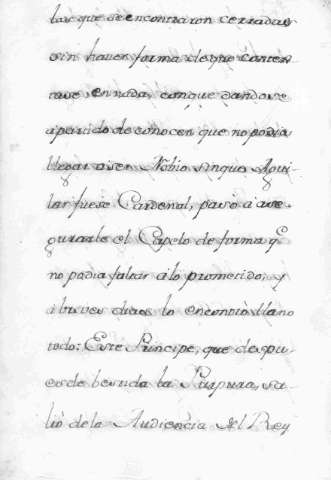 las que se encontraron cerradas
sin haver forma de que conten
tase en nada, conque dandose
apartido de conocer que no podia
llegar a ser Nobio sin que Agui
lar fuese Cardenal, pasó a ase
gurarle el Capelo de forma q.e
no podia faltar á lo prometido, y
á breves dias lo encontró llano
todo: Este Principe, que despu-
es de besada la Purpura, sa-
lió de la Audiencia del Rey